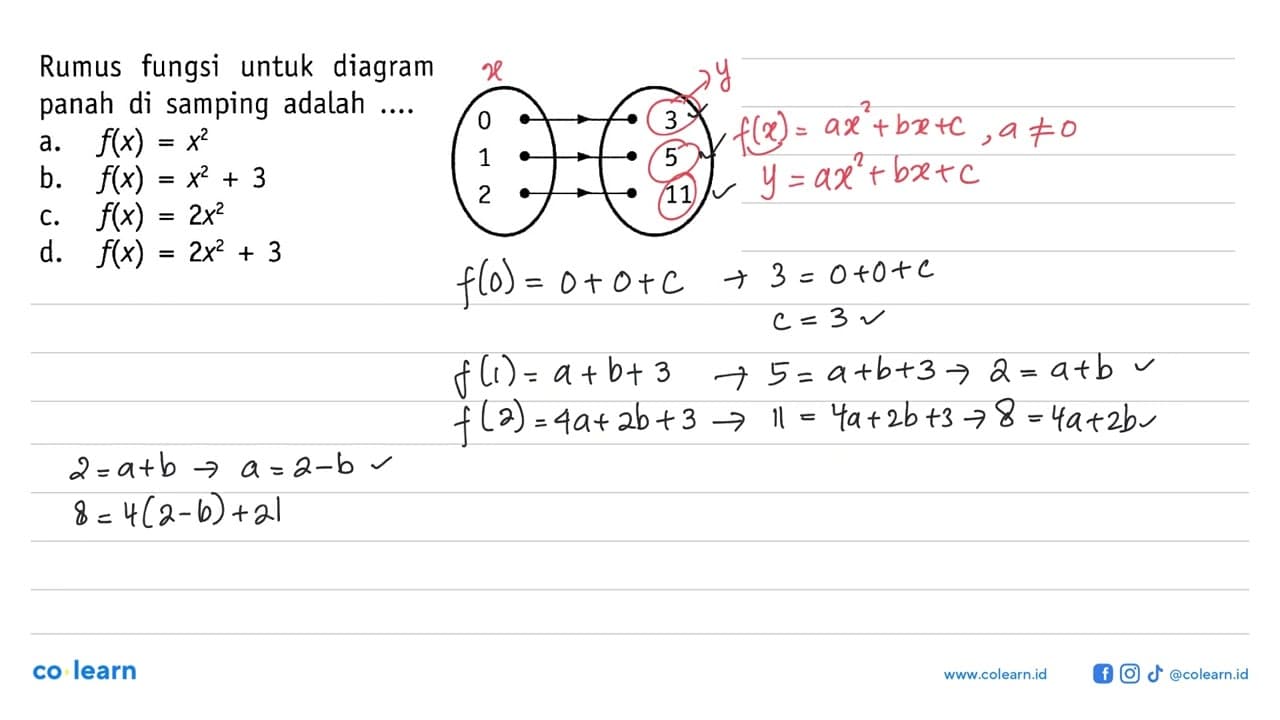 Rumus fungsi untuk diagram
panah di samping adalah ....
a. f(x) = x²
b. f(x) = x² + 3
c. f(x) = 2x²
d. f(x) = 2x² + 3
x
y
0 3
1 5
2 11
f(x) = ax² + bx + c , a ≠ 0
y = ax² + bx + c
f(0) = 0 + 0 + c → 3 = 0 + 0 + c
c = 3 ✓
f(1) = a + b + 3 → 5 = a + b + 3 → 2 = a + b ✓
f(2) = 4a + 2b + 3 → 11 = 4a + 2b + 3 → 8 = 4a + 2b ✓
2 = a + b → a = 2 - b ✓
8 = 4(2 - b) + 2l
co learn
www.colearn.id
@colearn.id